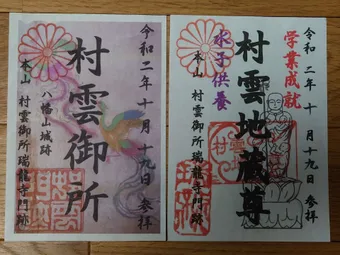 令和二年十月十九日 参拝
村雲御所
八幡山城跡
本山 村雲御所瑞龍寺門跡
令和二年十月十九日 参拝
学業成就
村雲地蔵尊
水子供養
本山 村雲御所瑞龍寺門跡